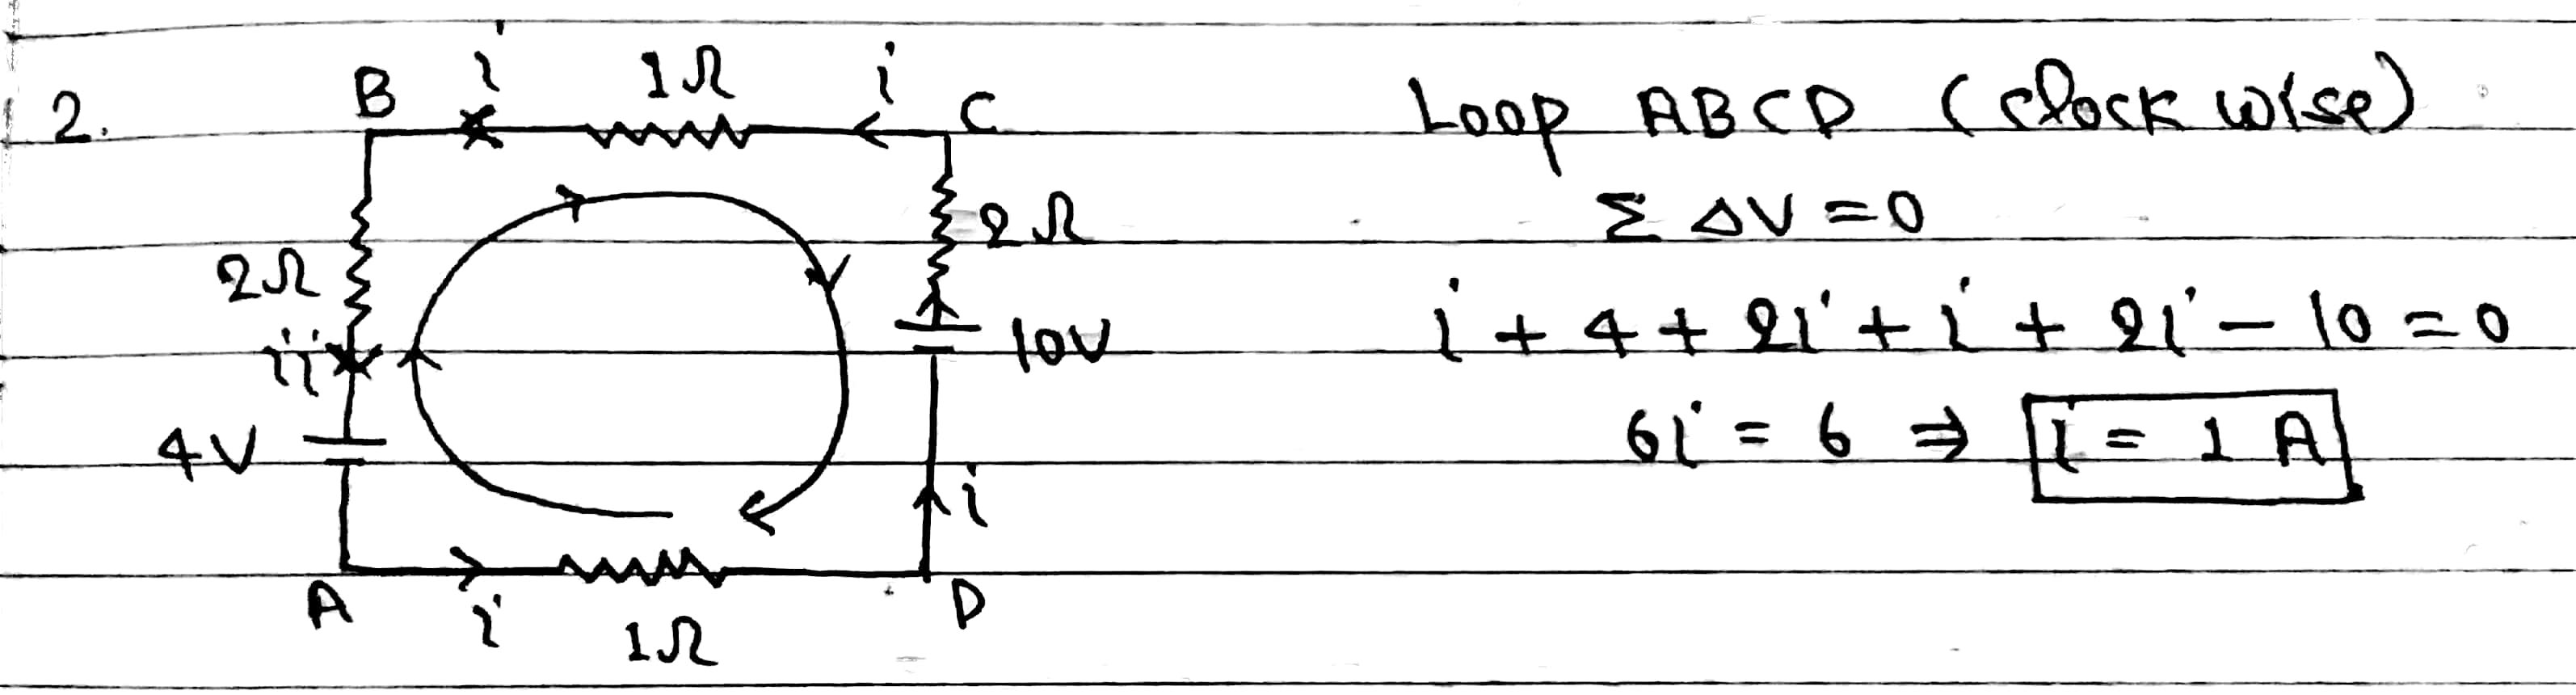 2.
B i 1Ω i C
2Ω
2Ω
i i
10V
4V
i
A i 1Ω D
Loop ABCD (clockwise)
Σ ΔV = 0
i + 4 + 2i + i + 2i - 10 = 0
6i = 6 ⇒ i = 1 A